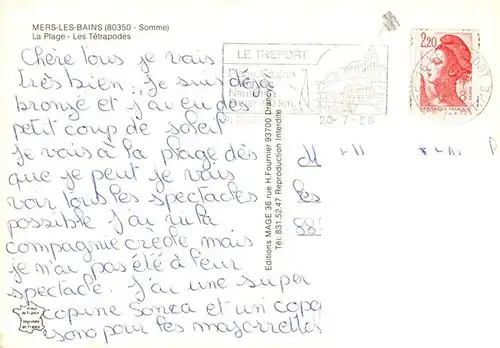 MERS-LES-BAINS (80350 - Somme)
La Plage - Les Tétrapodes
Chère tous je vais
très bien, je suis déja
bronzé et j'ai eu des
petit coup de soleil
je vais à la plage dès
que je peut je vais
voir tous les spectacles
possible j'ai vu la
compagnie créole mais
je n'ai pas été à leur
spectacle. J'ai une super
copine Sonea et un copa
sono pour les majorettes
LE TREPORT
20-7-88
2,20
Editions MAGE 36 rue H.Fournier 93700 Drancy
Tél: 831.52.47 Reproduction Interdite
M
les
88